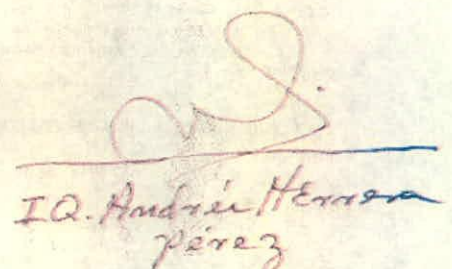 I.Q. Andrés Herrera
pérez